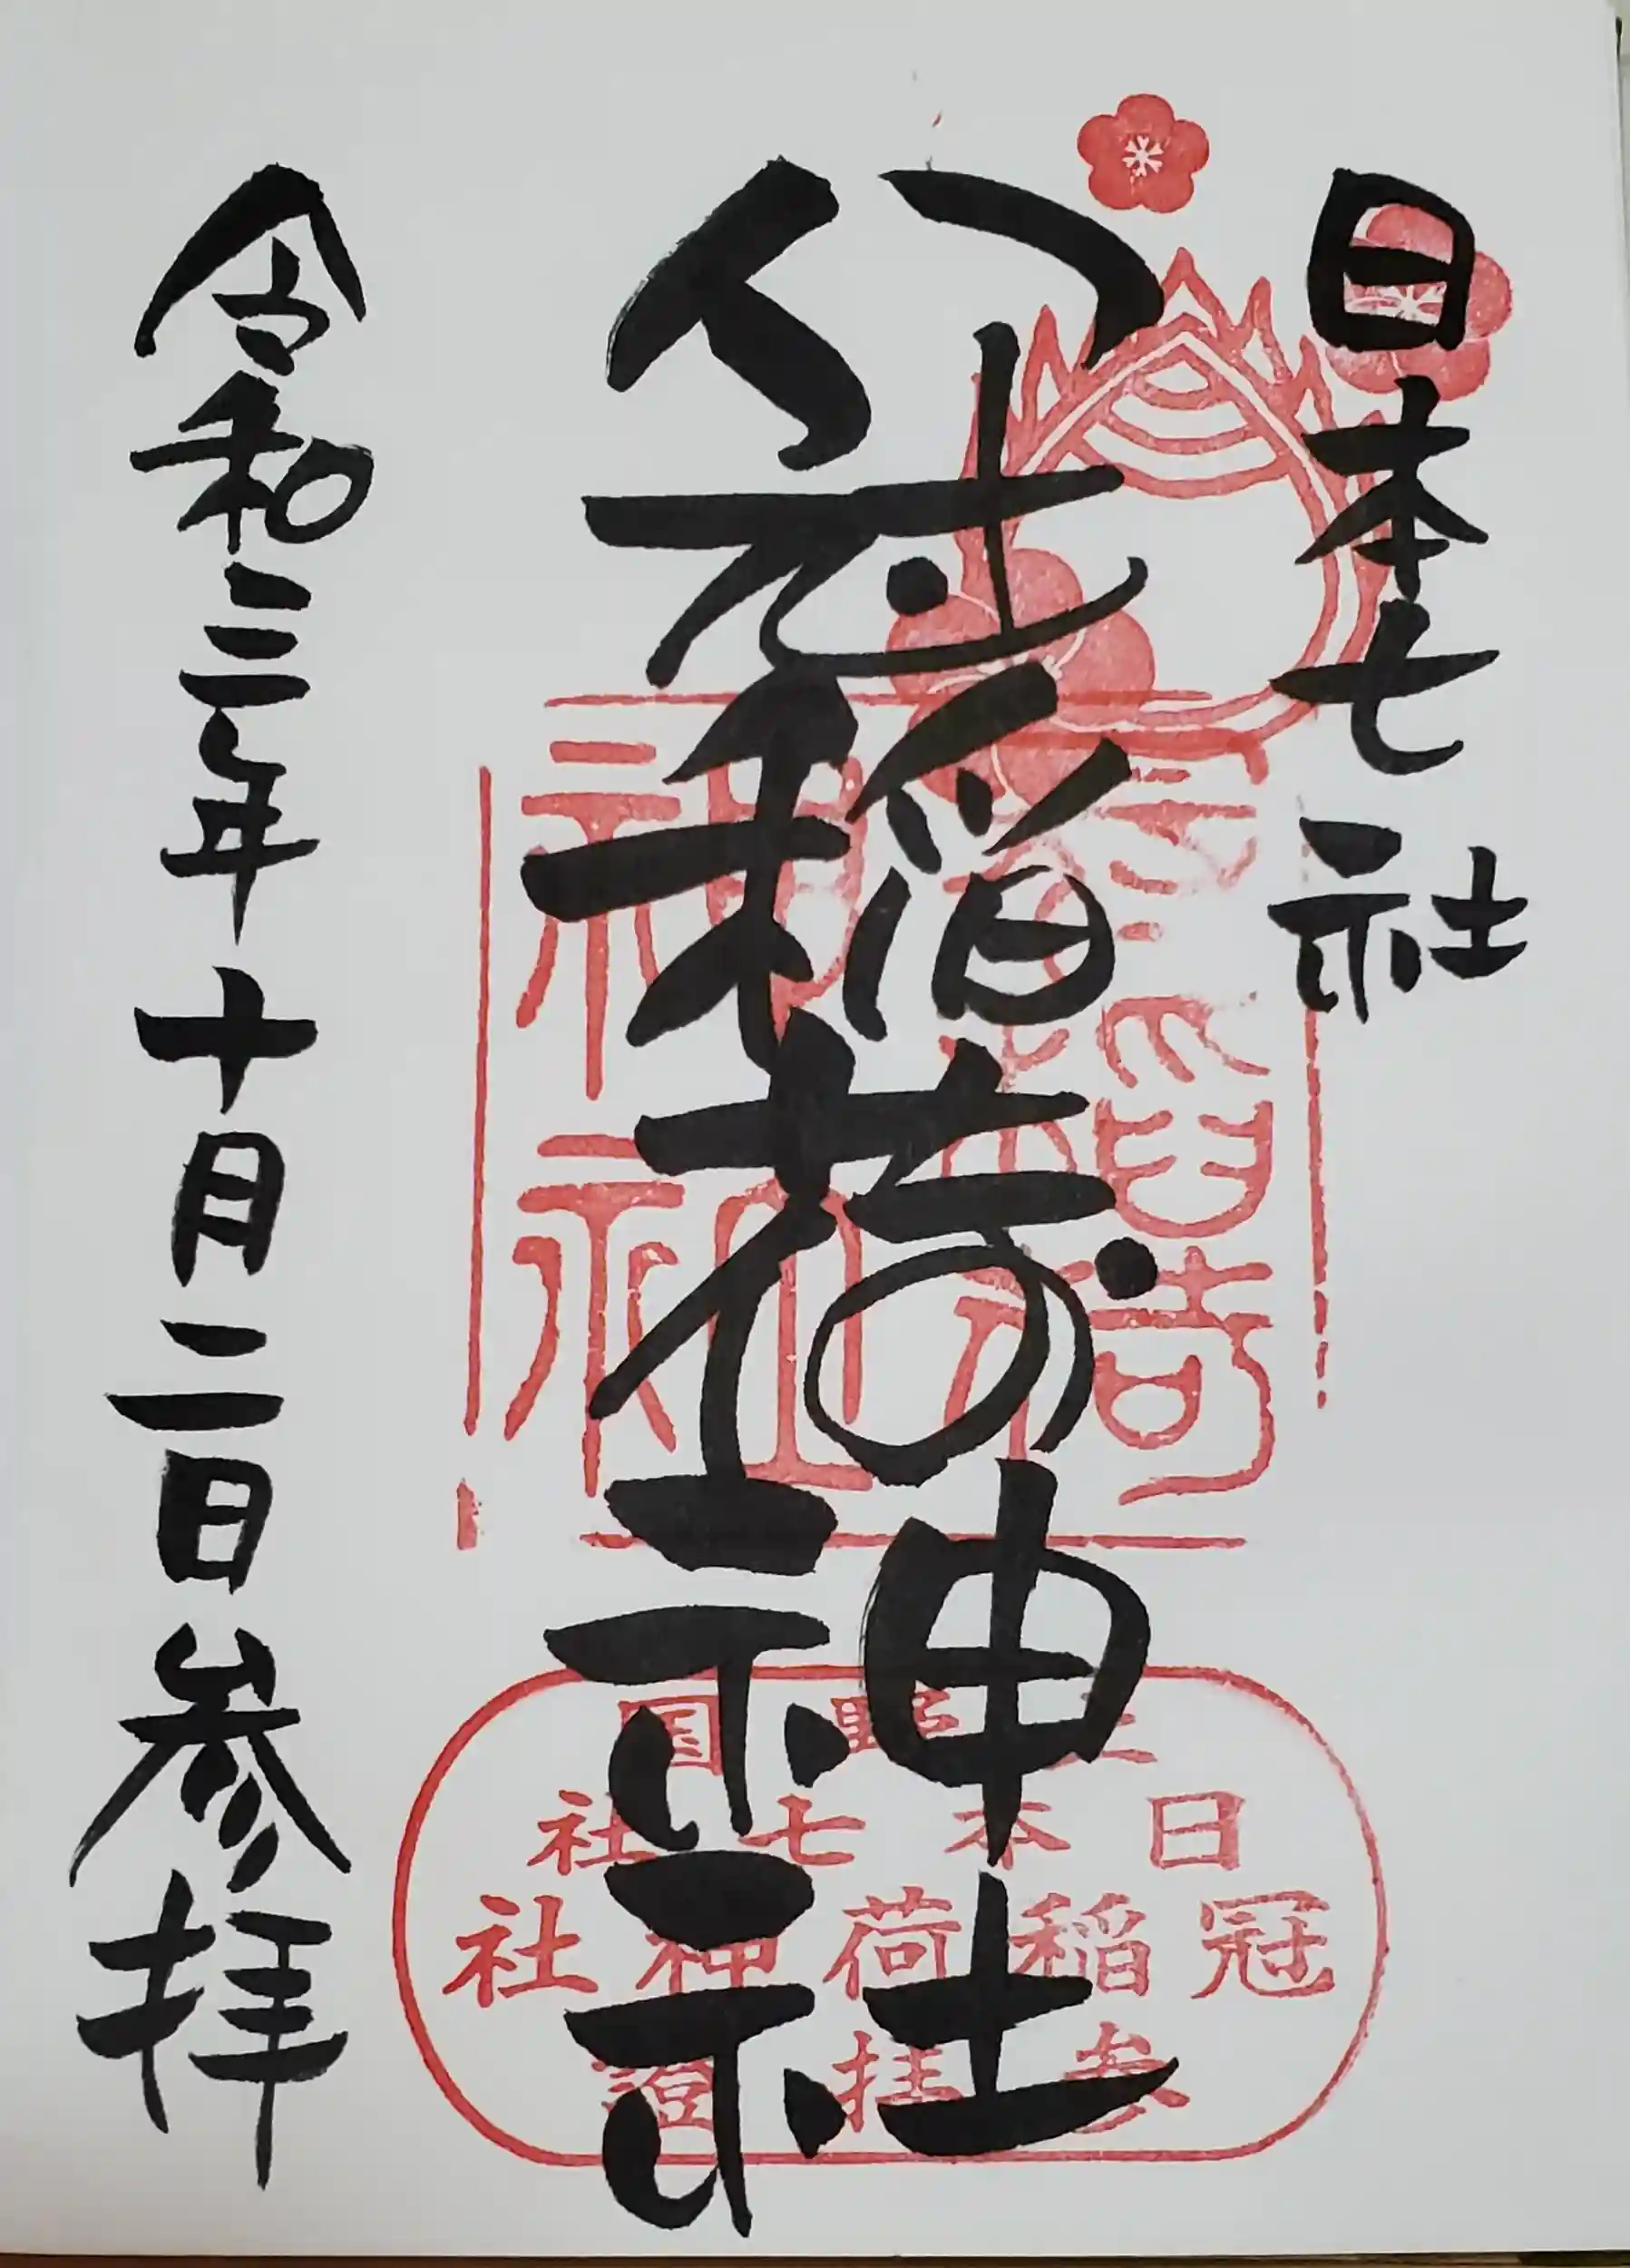 日本七社
冠稲荷神社
令和三年十月二日参拝
上野国
日本七社
冠稲荷神社
参拝證